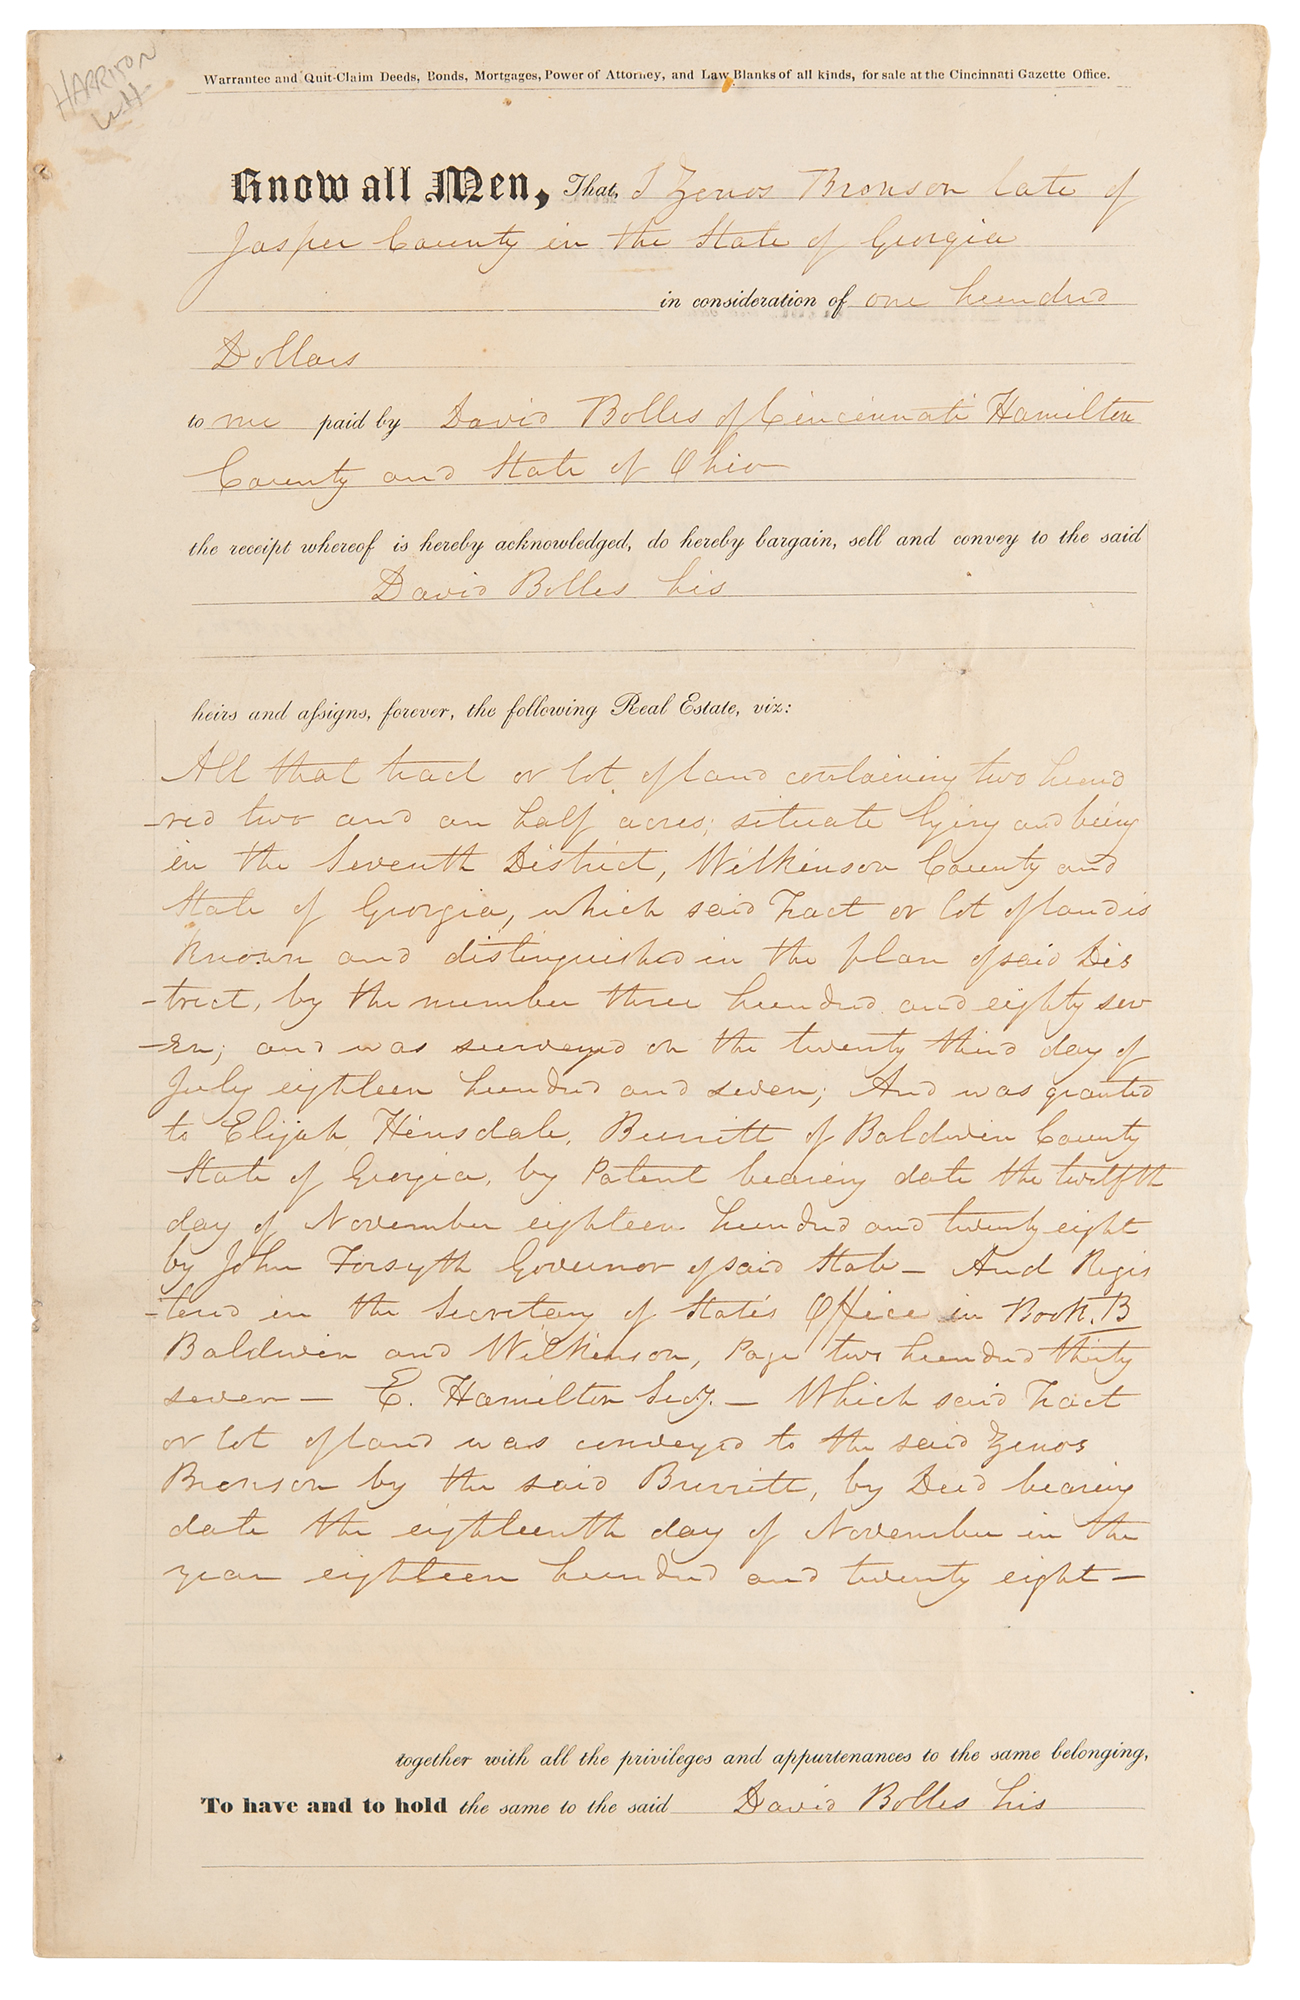 HARRISON
W H
Warrantee and Quit-Claim Deeds, Bonds, Mortgages, Power of Attorney, and Law Blanks of all kinds, for sale at the Cincinnati Gazette Office.
Know all Men, That, I Zenos Bronson late of
Jasper County in the State of Georgia
in consideration of one hundred
Dollars
to me paid by David Bolles of Cincinnati Hamilton
County and State of Ohio
the receipt whereof is hereby acknowledged, do hereby bargain, sell and convey to the said
David Bolles his
heirs and assigns, forever, the following Real Estate, viz:
All that tract or lot of land containing two hund
-red two and an half acres; situate lying and being
in the Seventh District, Wilkinson County and
State of Georgia, which said Tract or lot of land is
known and distinguished in the plan of said Dis
-trict, by the number three hundred and eighty sev
-en; and was surveyed on the twenty third day of
July eighteen hundred and seven; And was granted
to Elijah Hinsdale, Burritt of Baldwin County
State of Georgia, by Patent bearing date the twelfth
day of November eighteen hundred and twenty eight
by John Forsyth Governor of said State - And Regis
-tered in the Secretary of State's Office in Book. B
Baldwin and Wilkinson, Page two hundred thirty
seven - E. Hamilton Secy. - Which said Tract
or lot of land was conveyed to the said Zenos
Bronson by the said Burritt, by Deed bearing
date the eighteenth day of November in the
year eighteen hundred and twenty eight -
together with all the privileges and appurtenances to the same belonging,
To have and to hold the same to the said David Bolles his